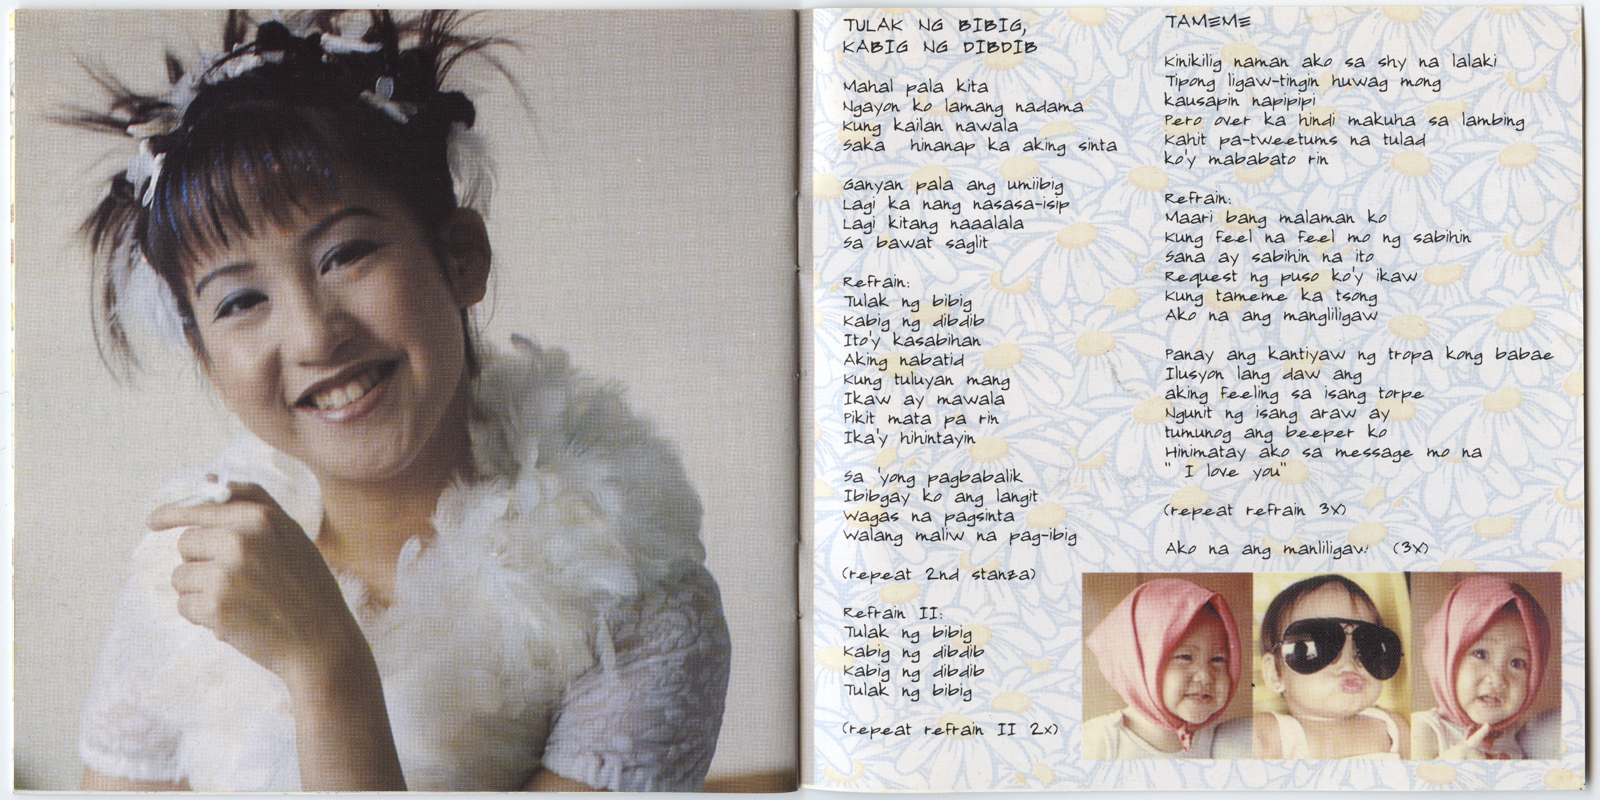 TULAK NG BIBIG,
KABIG NG DIBDIB
Mahal pala kita
Ngayon ko lamang nadama
Kung kailan nawala
Saka hinanap ka aking sinta
Ganyan pala ang umiibig
Lagi ka nang nasasa-isip
Lagi kitang naaalala
Sa bawat saglit
Refrain:
Tulak ng bibig
Kabig ng dibdib
Ito'y kasabihan
Aking nabatid
Kung tuluyan mang
Ikaw ay mawala
Pikit mata pa rin
Ika'y hihintayin
Sa 'yong pagbabalik
Ibibgay ko ang langit
Wagas na pagsinta
Walang maliw na pag-ibig
(repeat 2nd stanza)
Refrain II:
Tulak ng bibig
Kabig ng dibdib
Kabig ng dibdib
Tulak ng bibig
(repeat refrain II 2x)
TAMEME
Kinikilig naman ako sa shy na lalaki
Tipong ligaw-tingin huwag mong
kausapin napipipi
Pero over ka hindi makuha sa lambing
Kahit pa-tweetums na tulad
ko'y mababato rin
Refrain:
Maari bang malaman ko
Kung feel na feel mo ng sabihin
Sana ay sabihin na ito
Request ng puso ko'y ikaw
Kung tameme ka tsong
Ako na ang mangliligaw
Panay ang kantiyaw ng tropa kong babae
Ilusyon lang daw ang
aking feeling sa isang torpe
Ngunit ng isang araw ay
tumunog ang beeper ko
Hinimatay ako sa message mo na
" I love you"
(repeat refrain 3x)
Ako na ang manliligaw (3x)